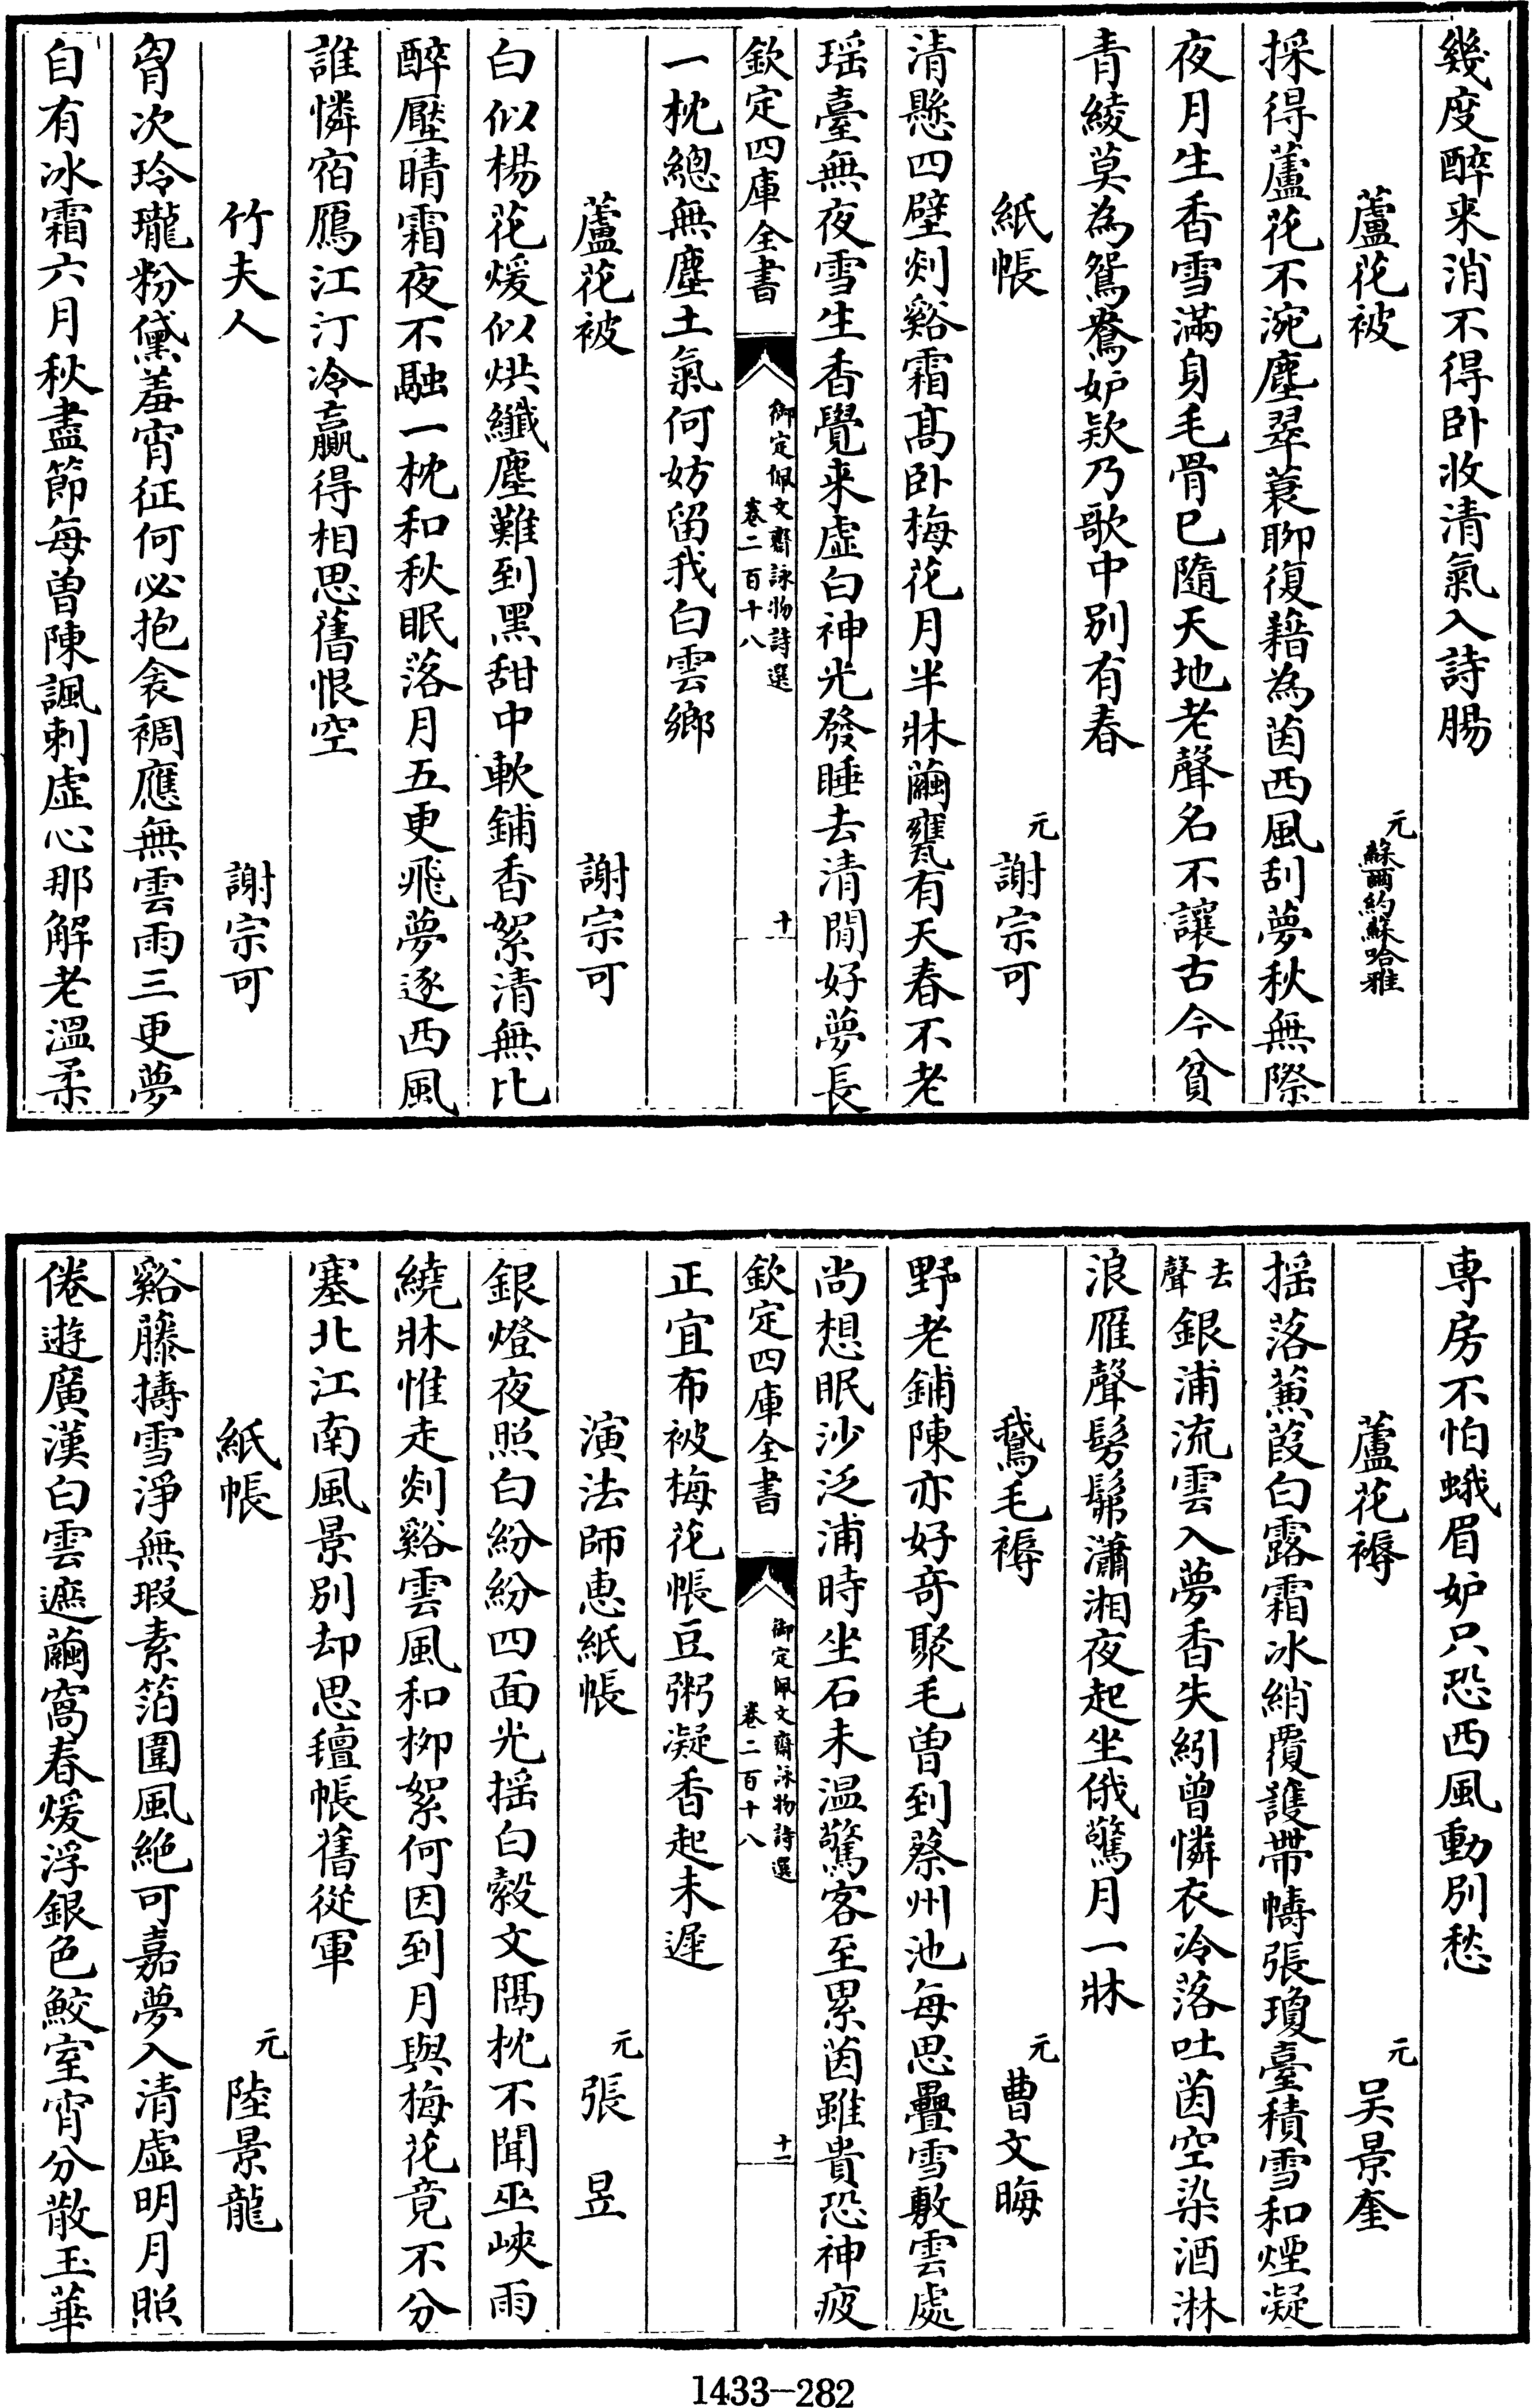 幾度醉来消不得卧收清氣入詩腸
蘆花被
元蘇爾約蘇哈雅
採得蘆花不涴塵翠蓑聊復藉為茵西風刮夢秋無際
夜月生香雪滿身毛骨已隨天地老聲名不讓古今貧
青綾莫為鴛鴦妒欵乃歌中别有春
紙帳
元謝宗可
清懸四壁剡谿霜髙卧梅花月半牀繭甕有天春不老
瑶臺無夜雪生香覺来虚白神光發睡去清閒好夢長
欽定四庫全書
御定佩文齋詠物詩選
卷二百十八
十
一枕總無塵土氣何妨留我白雲鄉
蘆花被
謝宗可
白似楊花煖似烘纖塵難到黑甜中軟鋪香絮清無比
醉壓晴霜夜不融一枕和秋眠落月五更飛夢逐西風
誰憐宿鴈江汀冷贏得相思舊恨空
竹夫人
謝宗可
胷次玲瓏粉黛羞宵征何必抱衾裯應無雲雨三更夢
自有冰霜六月秋盡節每曽陳諷刺虚心那解老溫柔
専房不怕蛾眉妒只恐西風動别愁
蘆花褥
元吴景奎
揺落蒹葭白露霜冰綃覆護帶幬張瓊臺積雪和煙凝
去聲銀浦流雲入夢香失紖曾憐衣冷落吐茵空染酒淋
浪雁聲髣髴瀟湘夜起坐俄驚月一牀
鵞毛褥
元曹文晦
野老鋪陳亦好竒聚毛曽到蔡州池每思疊雪敷雲處
尚想眠沙泛浦時坐石未温驚客至累茵雖貴恐神疲
欽定四庫全書
御定佩文齋詠物詩選
卷二百十八
十一
正宜布被梅花帳豆粥凝香起未遲
演法師恵紙帳
元張昱
銀燈夜照白紛紛四面光揺白縠文隔枕不聞巫峽雨
繞牀惟走剡谿雲風和柳絮何因到月與梅花竟不分
塞北江南風景别却思氊帳舊從軍
紙帳
元陸景龍
谿藤擣雪淨無瑕素箔圍風絶可嘉夢入清虛明月照
倦遊廣漢白雲遮繭窩春煖浮銀色鮫室宵分散玉華
1433-282